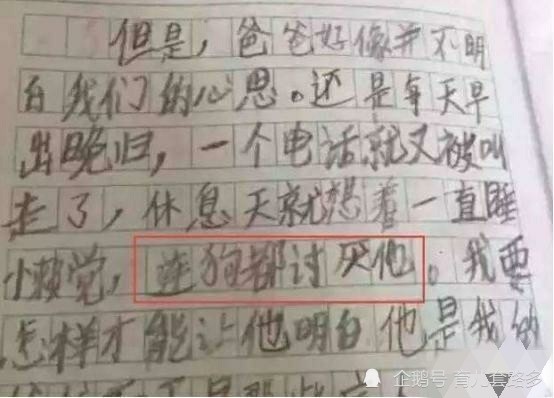 但是，爸爸好像并不明
白我们的心思。还是每天早
出晚归，一个电话就又被叫
走了，休息天就想着一直睡
小懒觉，连狗都讨厌他。我要
怎样才能让他明白他是我的
企鹅号 育儿套娄多